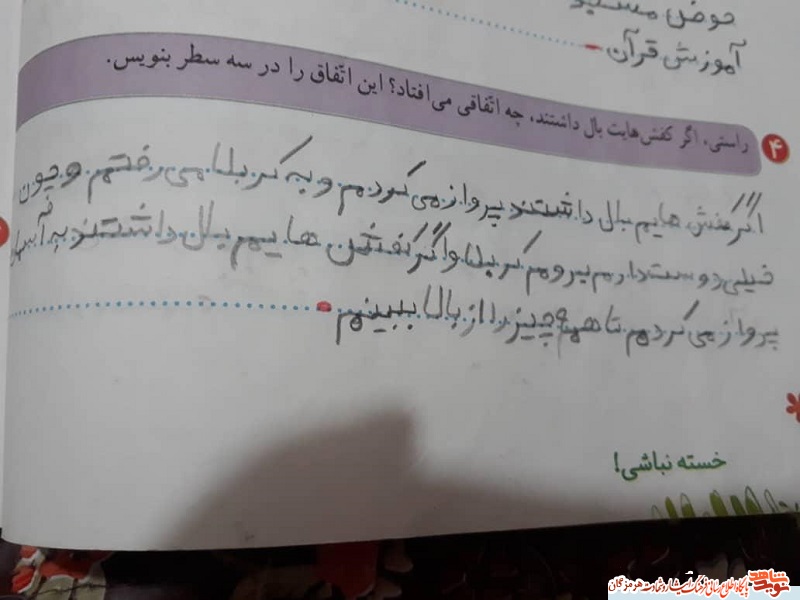 حوض
آموزش قرآن
۴ راستی، اگر کفش‌هایت بال داشتند، چه اتّفاقی می‌افتاد؟ این اتّفاق را در سه سطر بنویس.
اگر کفش هایم بال داشتند پرواز می کردم و به کربلا می رفتم و چون
خیلی دوست دارم بروم کربلا و اگر کفش هایم بال داشتند به آسمان
پرواز می کردم تا همه چیز را از بالا ببینم
خسته نباشی!
شاهد
نوید
پایگاه اطلاع رسانی فرهنگ ایثار و شهادت هرمزگان